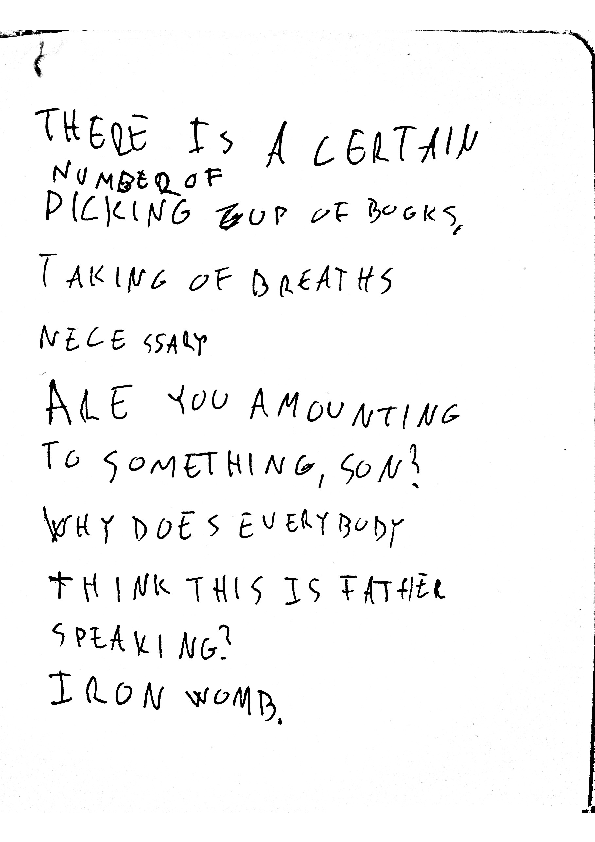 THERE IS A CERTAIN
NUMBER OF
PICKING UP OF BOOKS,
TAKING OF BREATHS
NECESSARY
ARE YOU AMOUNTING
TO SOMETHING, SON?
WHY DOES EVERYBODY
THINK THIS IS FATHER
SPEAKING?
IRON WOMB.